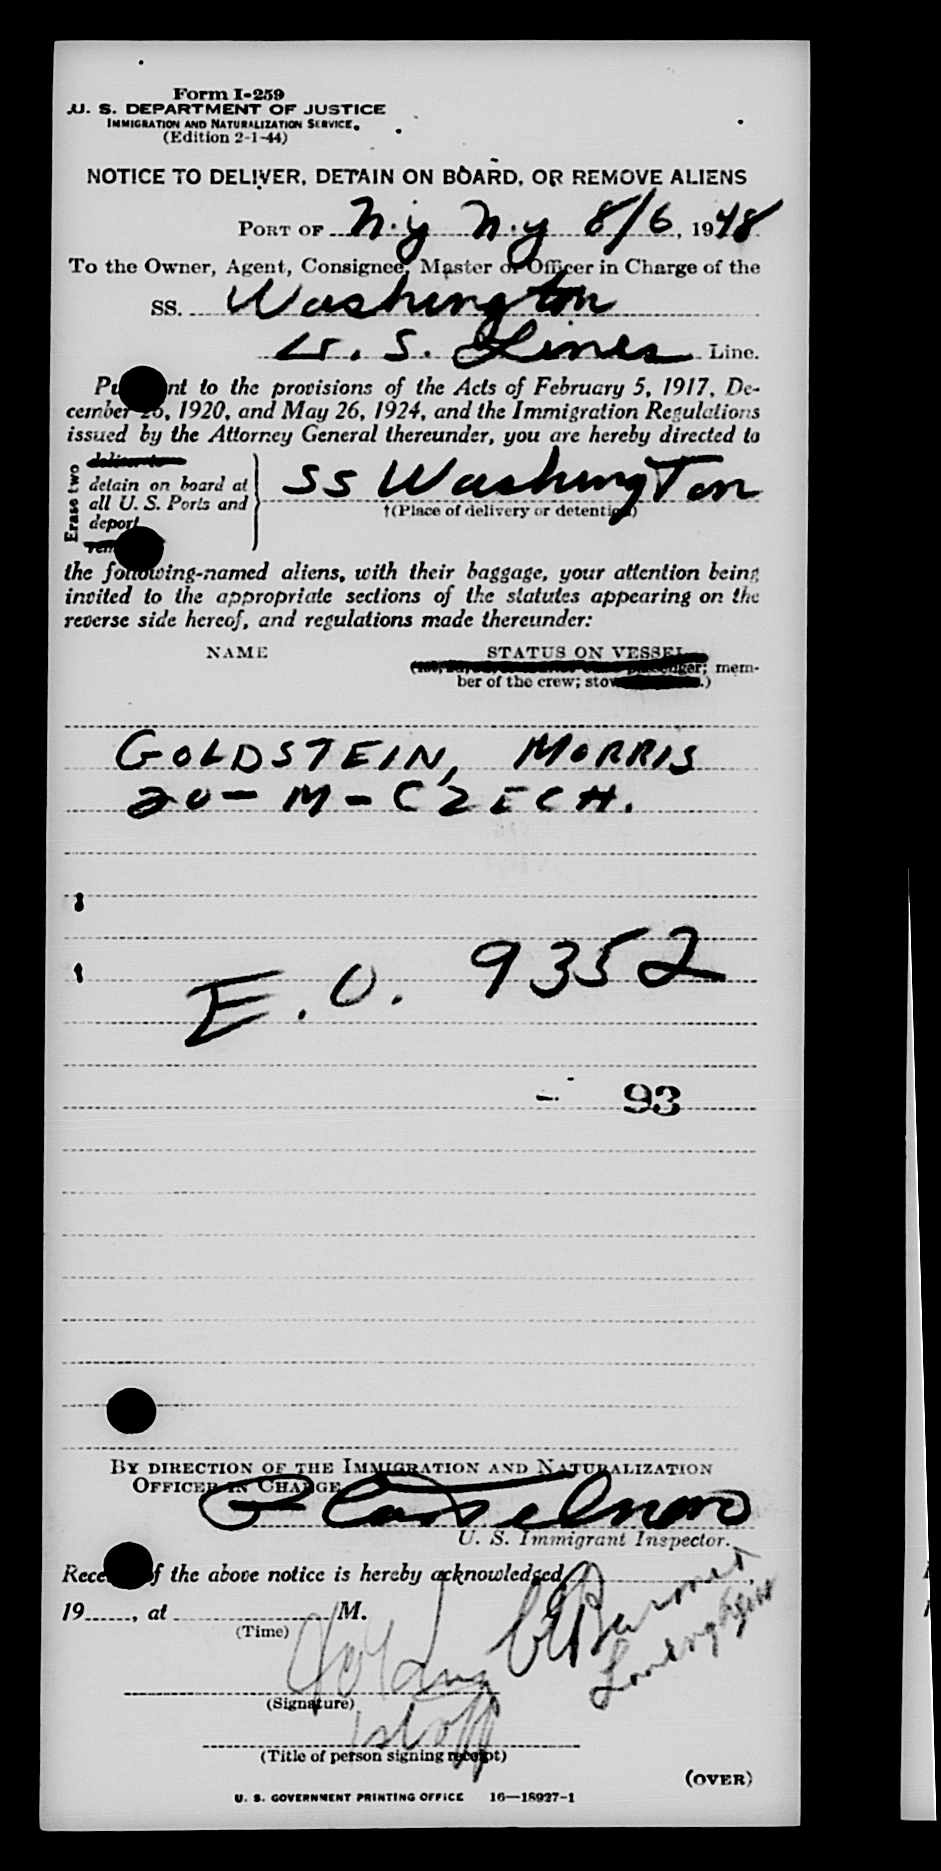 Form I-259
U. S. DEPARTMENT OF JUSTICE
IMMIGRATION AND NATURALIZATION SERVICE
(Edition 2-1-44)
NOTICE TO DELIVER, DETAIN ON BOARD, OR REMOVE ALIENS
PORT OF N.Y N.Y 8/6, 1948
To the Owner, Agent, Consignee, Master or Officer in Charge of the
SS. Washington
U. S. Lines Line.
to the provisions of the Acts of February 5, 1917, De-
cember 26, 1920, and May 26, 1924, and the Immigration Regulations
issued by the Attorney General thereunder, you are hereby directed to
Erase two
detain on board at
all U. S. Ports and
deport
SS Washington
†(Place of delivery or detention)
the following-named aliens, with their baggage, your attention being
invited to the appropriate sections of the statutes appearing on the
reverse side hereof, and regulations made thereunder:
NAME STATUS ON VESSEL
passenger; mem-
ber of the crew; stow
GOLDSTEIN, MORRIS
20-M-CZECH.
E.O. 9352
93
BY DIRECTION OF THE IMMIGRATION AND NATURALIZATION
OFFICER IN CHARGE
U. S. Immigrant Inspector.
of the above notice is hereby acknowledged
19......, at M.
(Time)
(Signature)
1st off
(Title of person signing receipt)
(OVER)
U. S. GOVERNMENT PRINTING OFFICE 16—18927-1